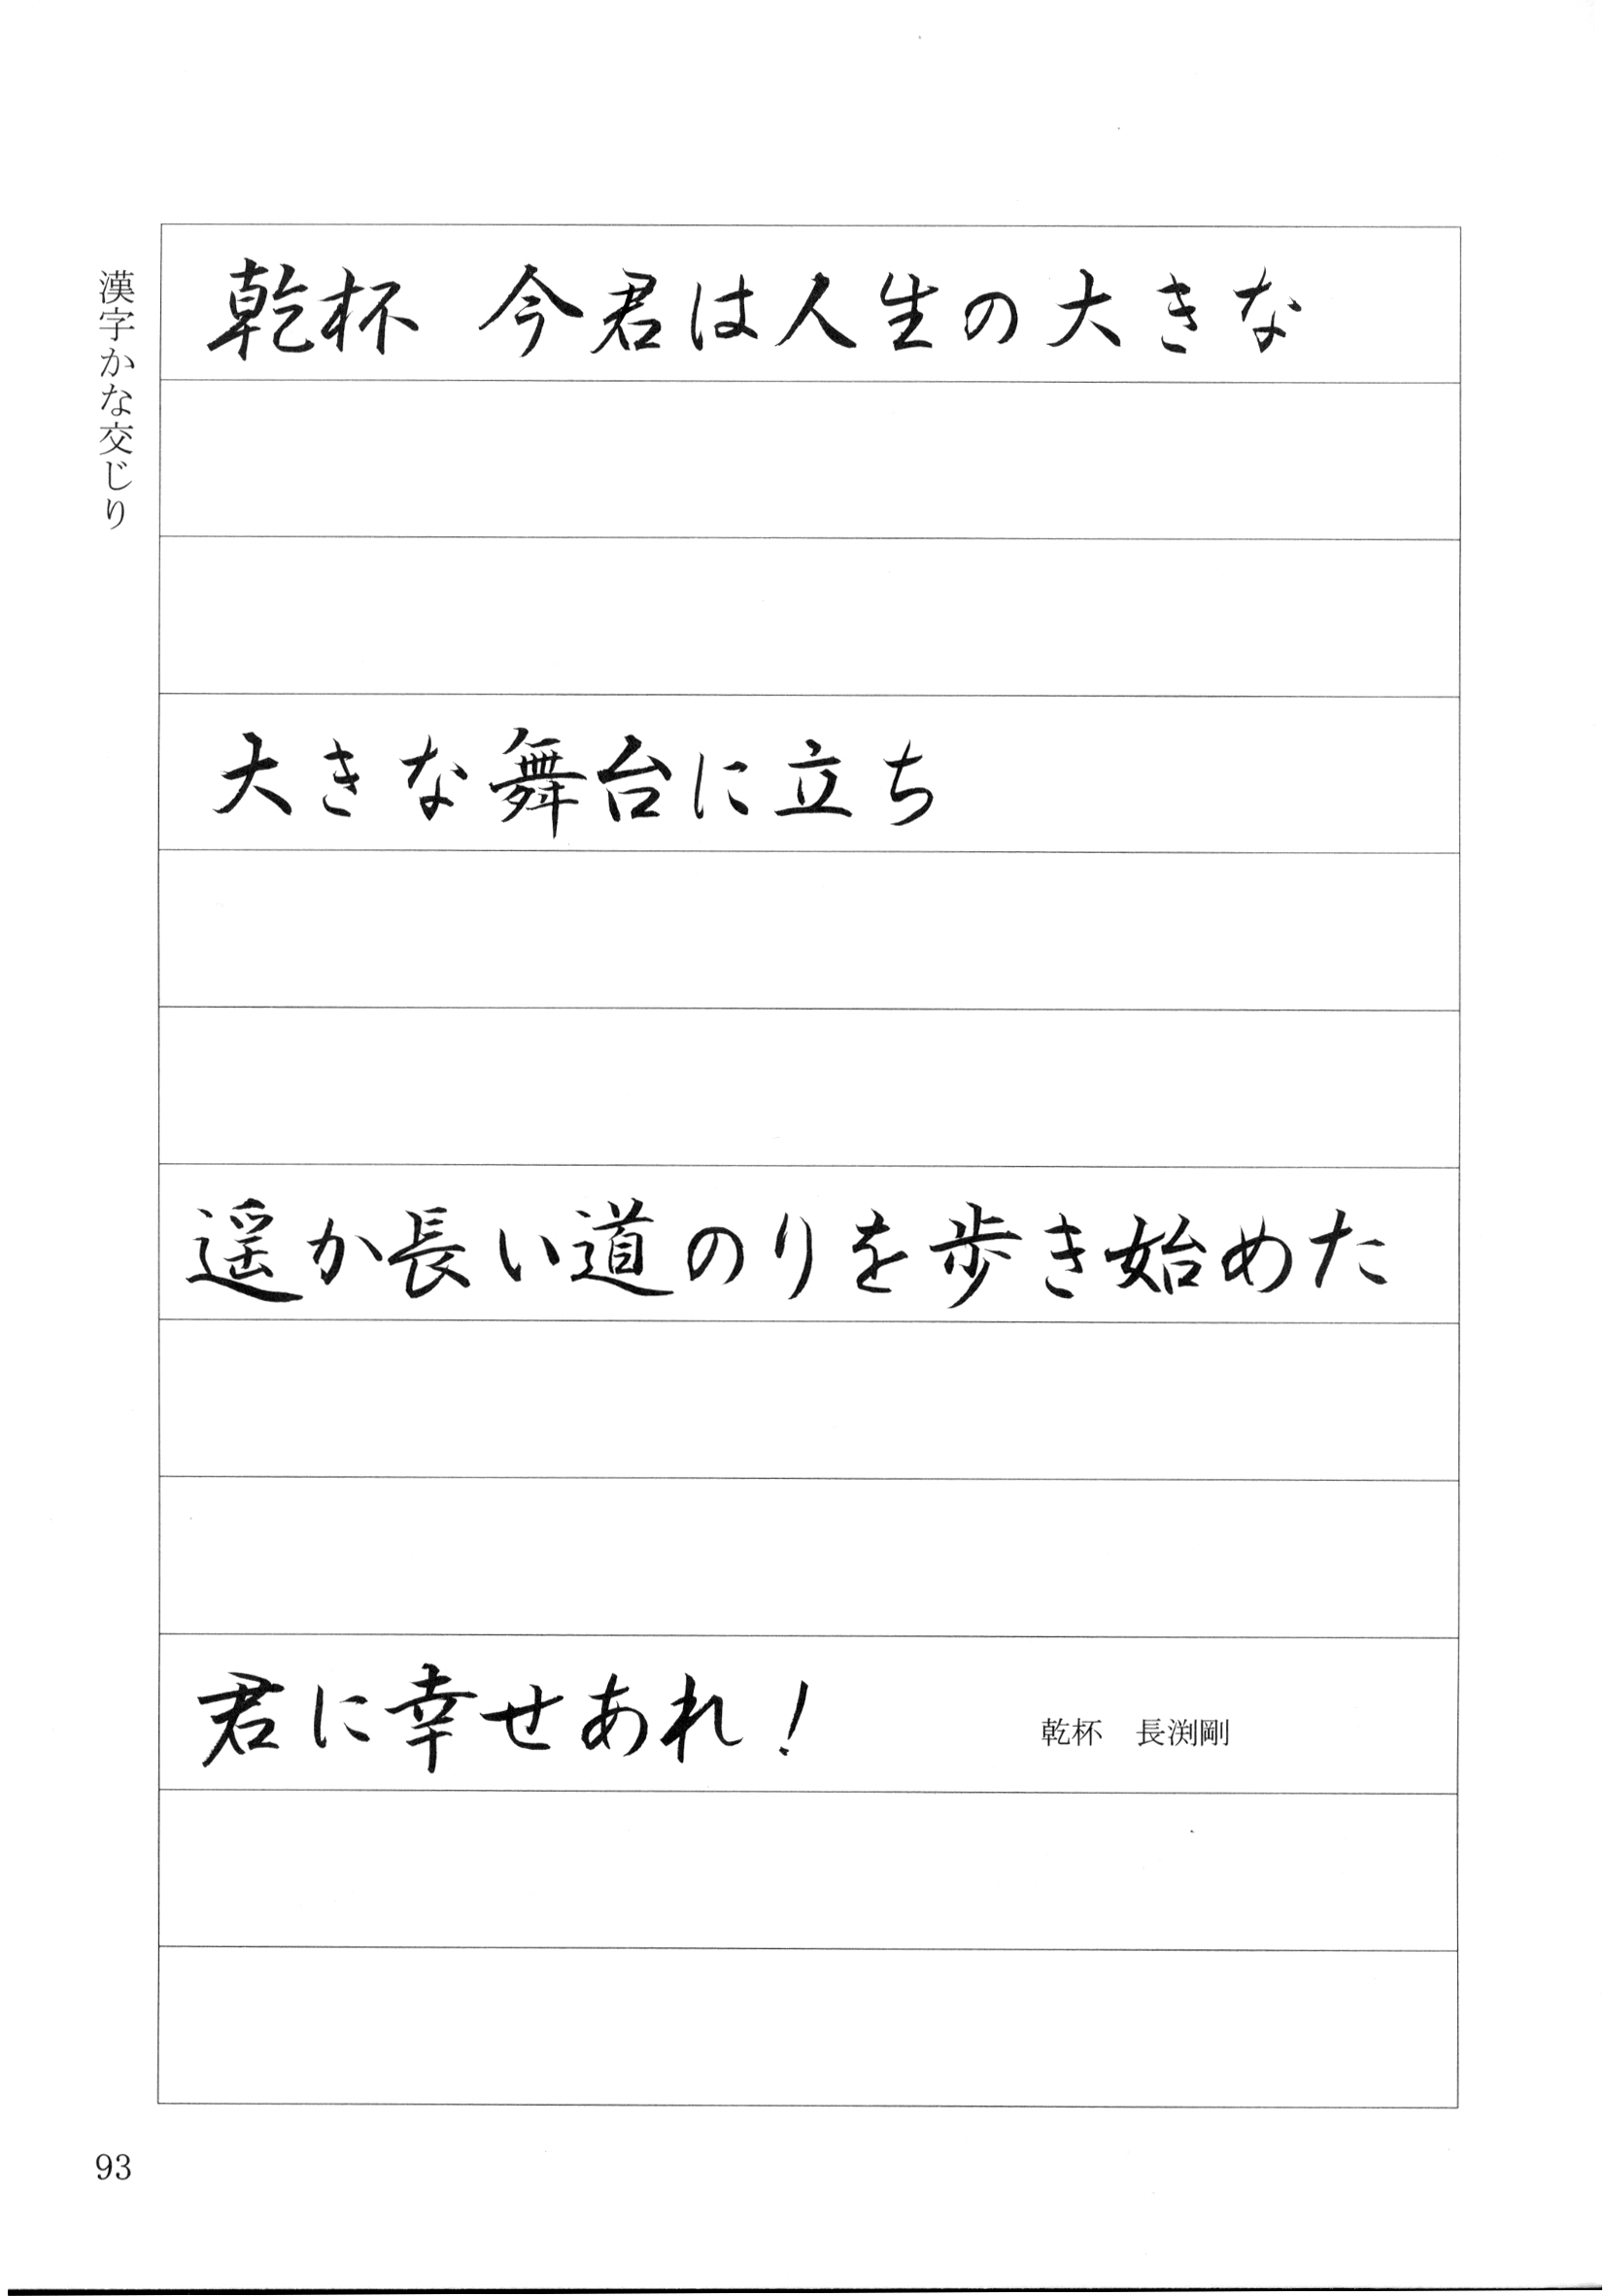 漢字かな交じり
乾杯 今君は人生の大きな
大きな舞台に立ち
遥か長い道のりを歩き始めた
君に幸せあれ！
乾杯　長渕剛
93